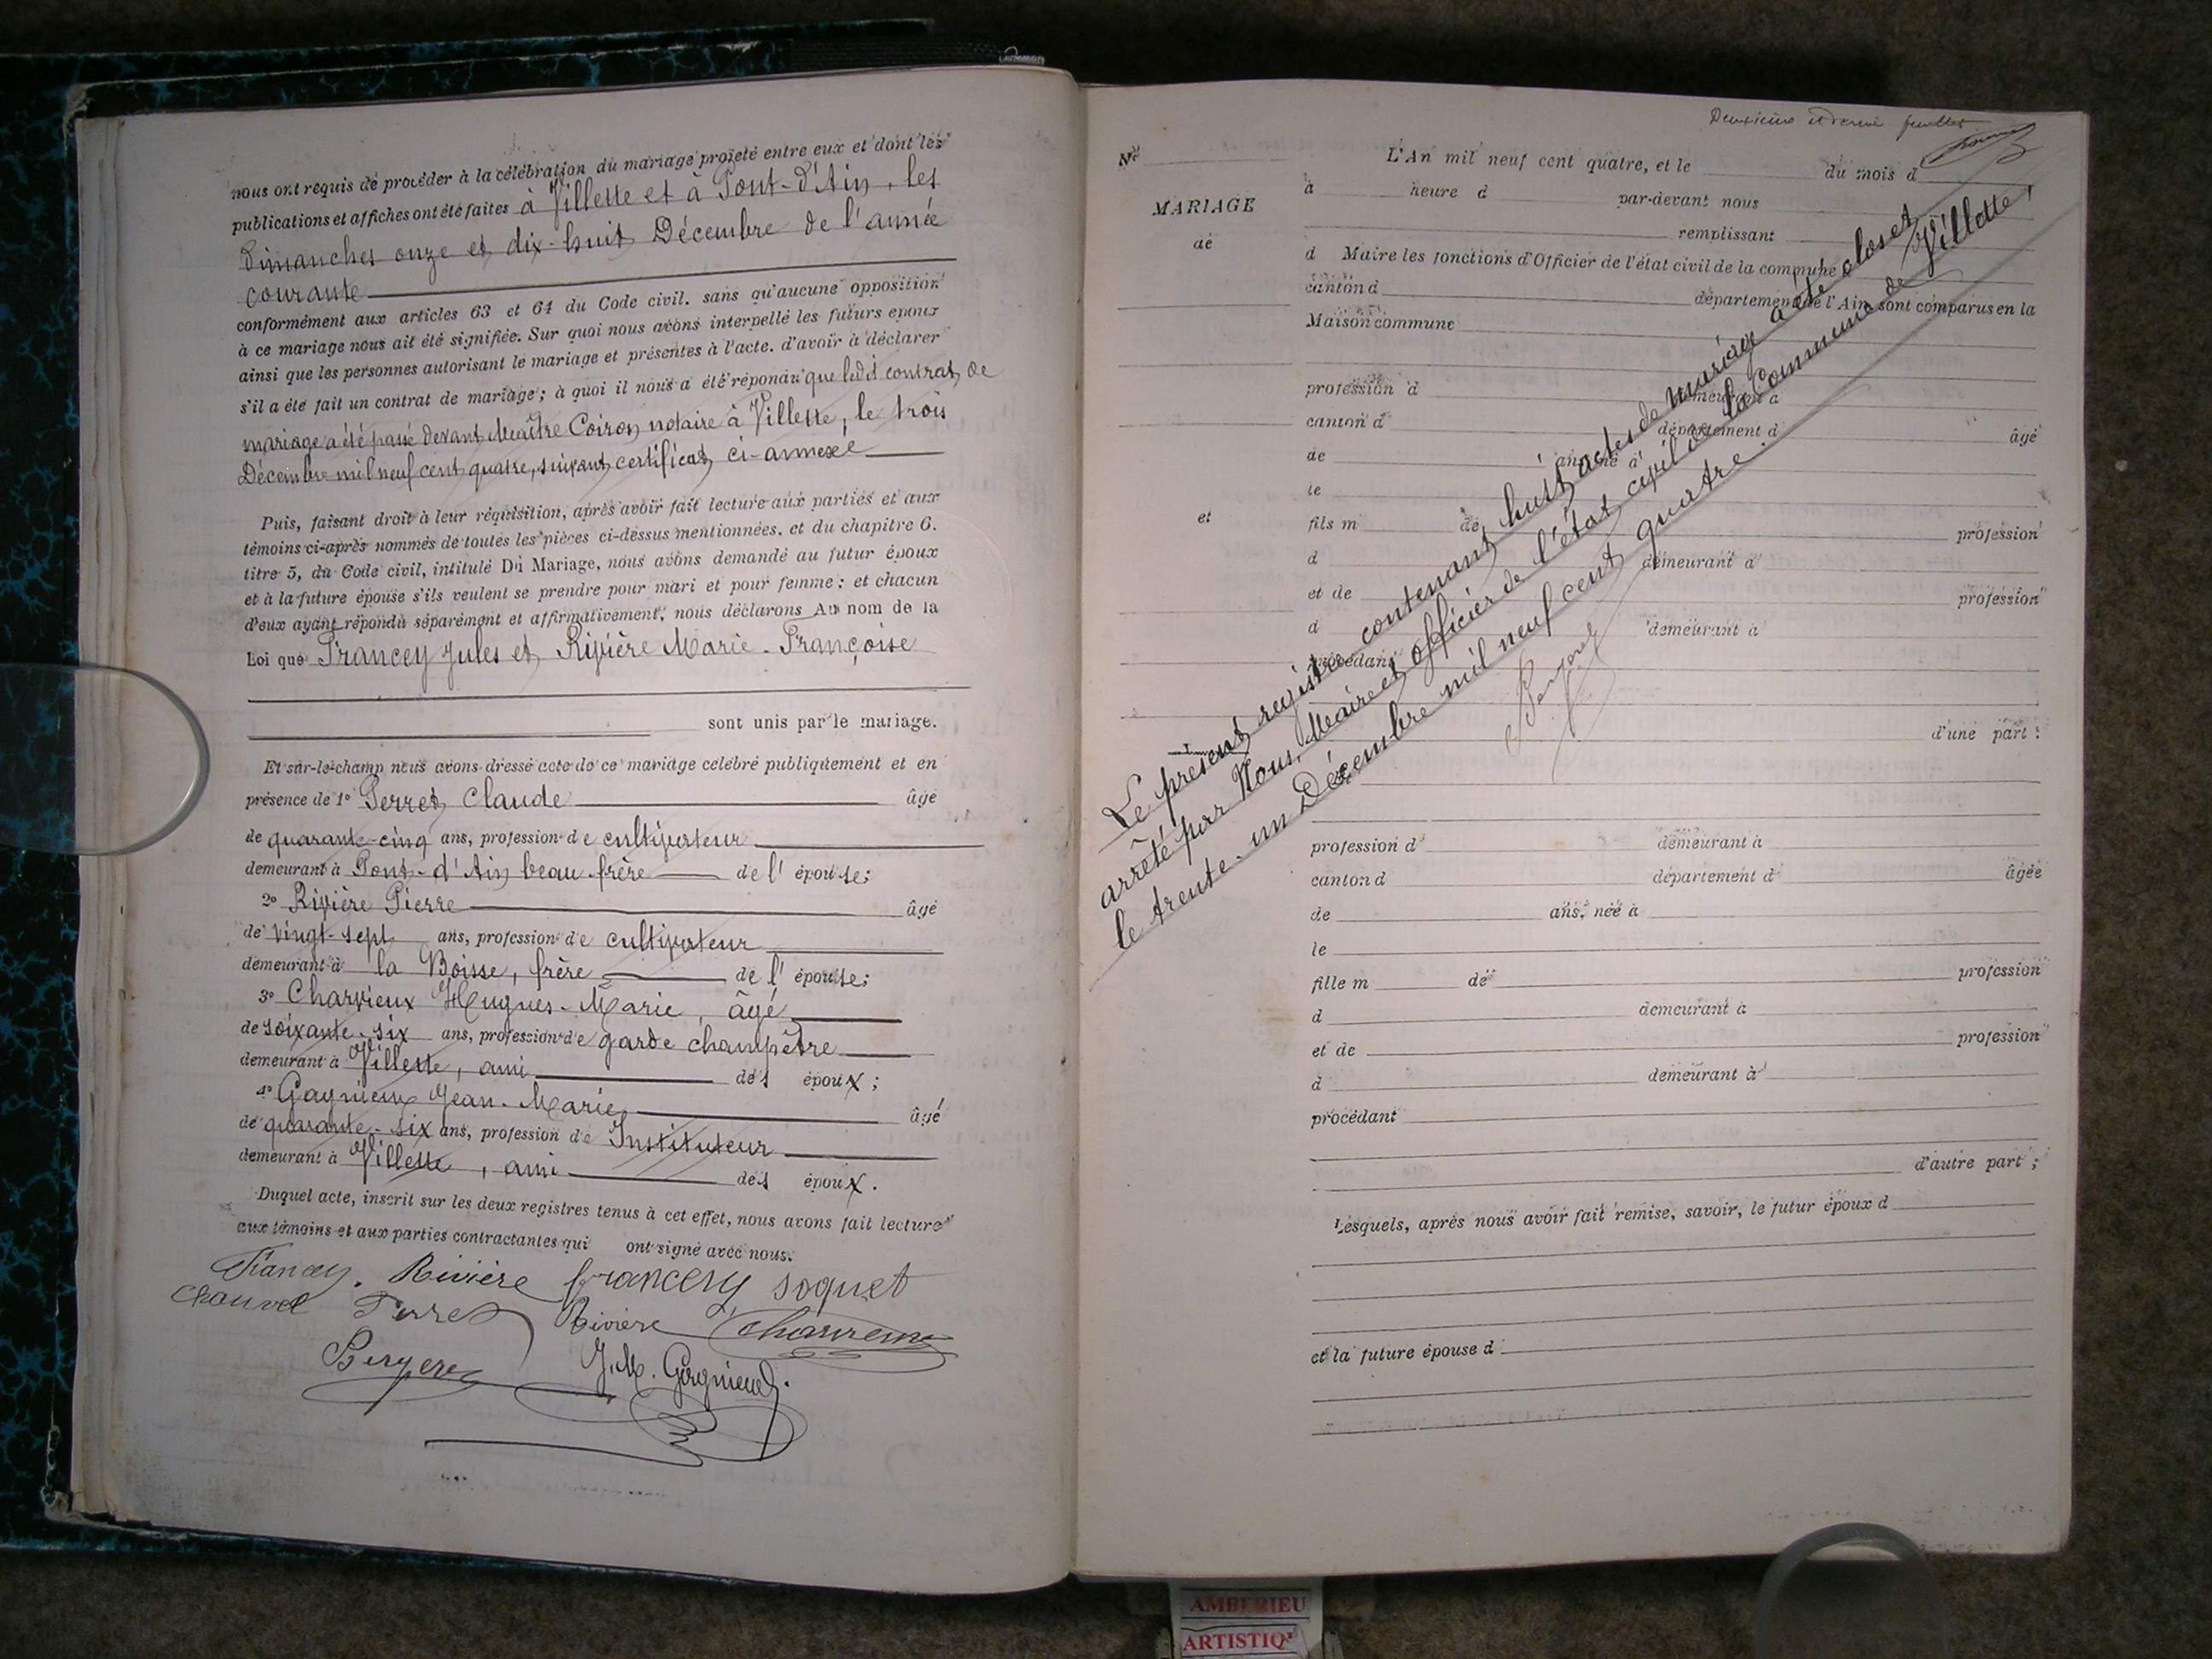 nous ont requis de procéder à la célébration du mariage projeté entre eux et dont les
publications et affiches ont été faites à Villette et à Pont-d'Ain, les
dimanches onze et dix-huit Décembre de l'année
courante
conformément aux articles 63 et 64 du Code civil. sans qu'aucune opposition
à ce mariage nous ait été signifiée. Sur quoi nous avons interpellé les futurs époux
ainsi que les personnes autorisant le mariage et présentes à l'acte. d'avoir à déclarer
s'il a été fait un contrat de mariage; à quoi il nous a été répondu que ledit contrat de
mariage a été passé devant Maître Coiron notaire à Villette, le trois
Décembre mil neuf cent quatre, suivant certificat ci-annexé
Puis, faisant droit à leur réquisition, après avoir fait lecture aux parties et aux
témoins ci-après nommés de toutes les pièces ci-dessus mentionnées. et du chapitre 6.
titre 5, du Code civil, intitulé Du Mariage, nous avons demandé au futur époux
et à la future épouse s'ils veulent se prendre pour mari et pour femme; et chacun
d'eux ayant répondu séparément et affirmativement, nous déclarons Au nom de la
Loi que Francey Jules et Rivière Marie-Françoise
sont unis par le mariage.
Et sur-le-champ nous avons dressé acte de ce mariage célébré publiquement et en
présence de 1º Perret Claude âgé
de quarante-cinq ans, profession de cultivateur
demeurant à Pont-d'Ain beau-frère de l' épouse;
2º Rivière Pierre âgé
de vingt-sept ans, profession de cultivateur
demeurant à la Boisse, frère de l' épouse;
3º Charvieux Hugues-Marie, âgé
de soixante-six ans, profession de garde champêtre
demeurant à Villette, ami des époux;
4º Gagnieux Jean-Marie, âgé
de quarante-six ans, profession de Instituteur
demeurant à Villette, ami des époux.
Duquel acte, inscrit sur les deux registres tenus à cet effet, nous avons fait lecture
aux témoins et aux parties contractantes qui ont signé avec nous.
Francey. Rivière francey soquet
Chauvet Perret Rivière Charvieux
Bergeret J.M. Gagnieux.
Deuxième et dernier feuillet
Nº
L'An mil neuf cent quatre, et le du mois d
à heure d par-devant nous
MARIAGE
remplissant
de
d Maire les fonctions d'Officier de l'état civil de la commune d
canton d département de l'Ain sont comparus en la
Maison commune
profession d demeurant à
canton d département d âgé
de ans, né à
le
et
fils m de profession
d demeurant à
et de profession
d demeurant à
procédant
d'une part;
Le présent registre contenant huit actes de mariage a été clos et
arrêté par Nous, Maire et officier de l'état civil de la Commune de Villette,
le trente-un Décembre mil neuf cent quatre.
Bergeret
profession d demeurant à
canton d département d âgée
de ans, née à
le
fille m de profession
d demeurant à
et de profession
d demeurant à
procédant
d'autre part;
Lesquels, après nous avoir fait remise, savoir, le futur époux d
et la future épouse d
AMBERIEU
ARTISTIQ